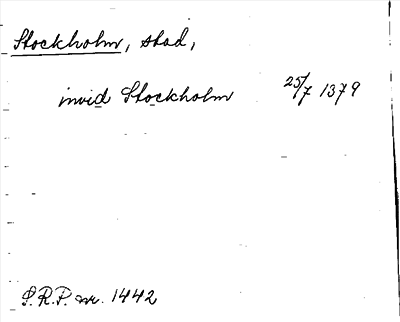 Stockholm, stad,
invid Stockholm 25/7 1379
S.R.P. nr. 1442